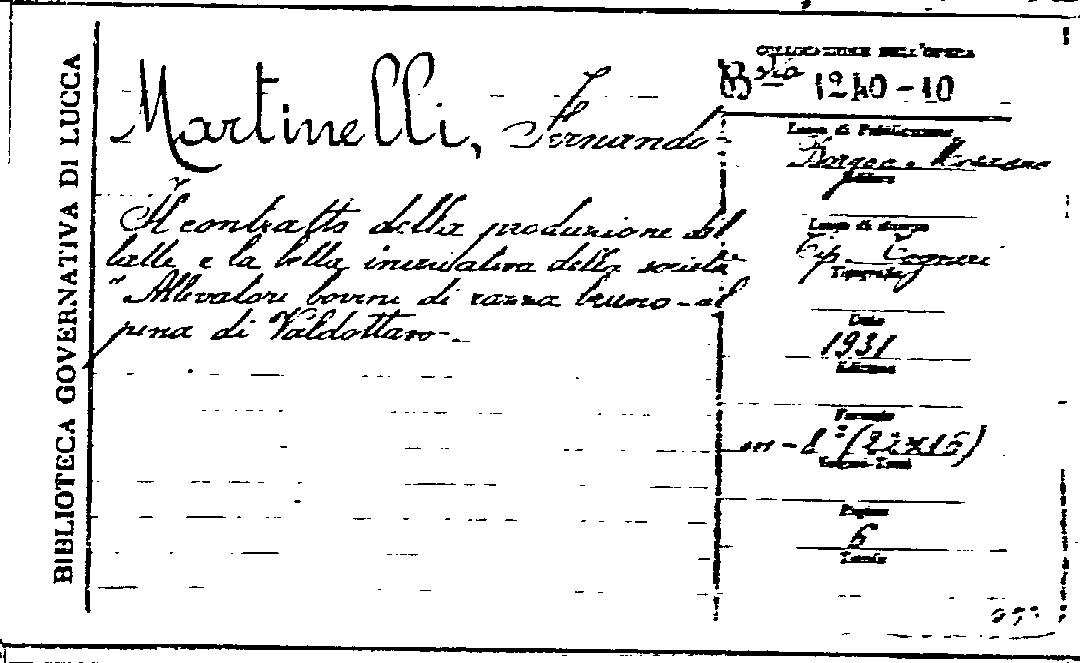 BIBLIOTECA GOVERNATIVA DI LUCCA
Martinelli, Fernando
Il contratto della produzione del
latte e la bella iniziativa della società
"Allevatori bovini di razza bruno-al
pina di Valdottavo.
COLLOCAZIONE DELL'OPERA
B.sta 1240-10
Luogo di Pubblicazione
Borgo a Mozzano
Editore
Luogo di stampa
Tip. Tognari
Tipografia
Data
1931
Edizione
Formato
in-8° (22x16)
Volumi-Tomi
Pagine
6
Tavole